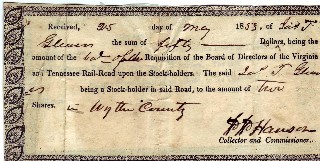 Received, 25 day of May 1853, of
the sum of fifty Dollars, being the
amount of the Requisition of the Board of Directors of the Virginia
and Tennessee Rail-Road upon the Stock-holders. The said
being a Stock-holder in said Road, to the amount of two
Shares. in Wythe County
Hanson
Collector and Commissioner.